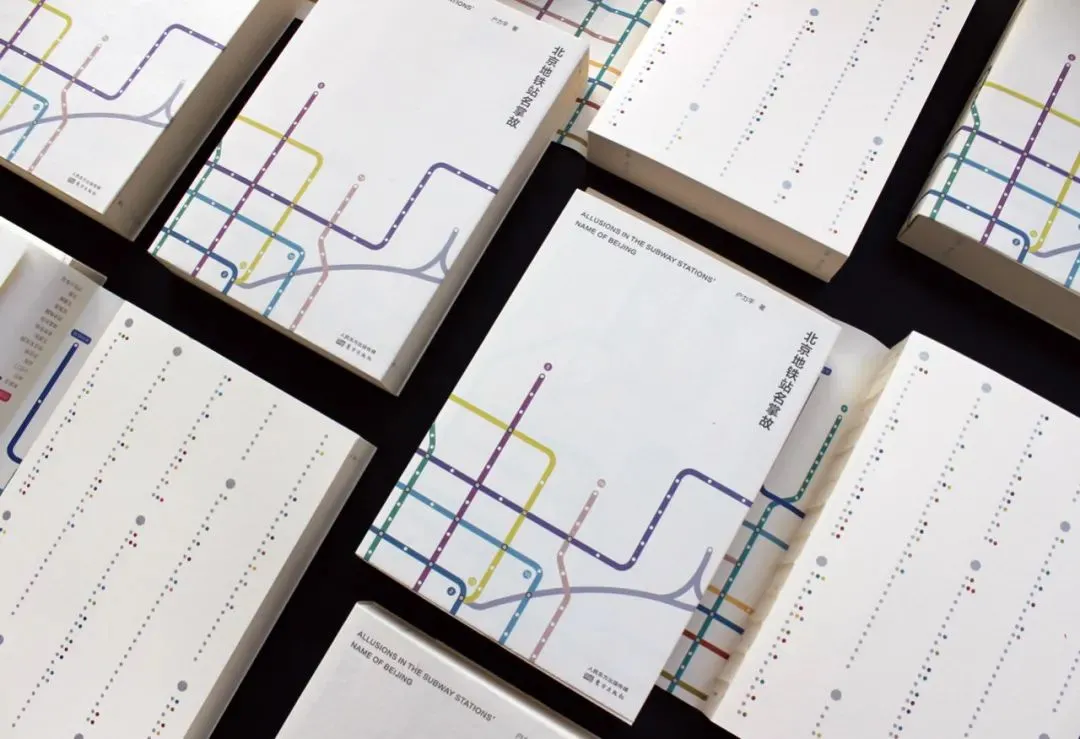 STATIONS'
户力平 著
北京地铁站名掌故
人民东方出版传媒
东方出版社
ALLUSIONS IN THE SUBWAY STATIONS'
NAME OF BEIJING
户力平 著
北京地铁站名掌故
人民东方出版传媒
东方出版社
ALLUSIONS IN THE SUBWAY STATIONS'
NAME OF BEIJING